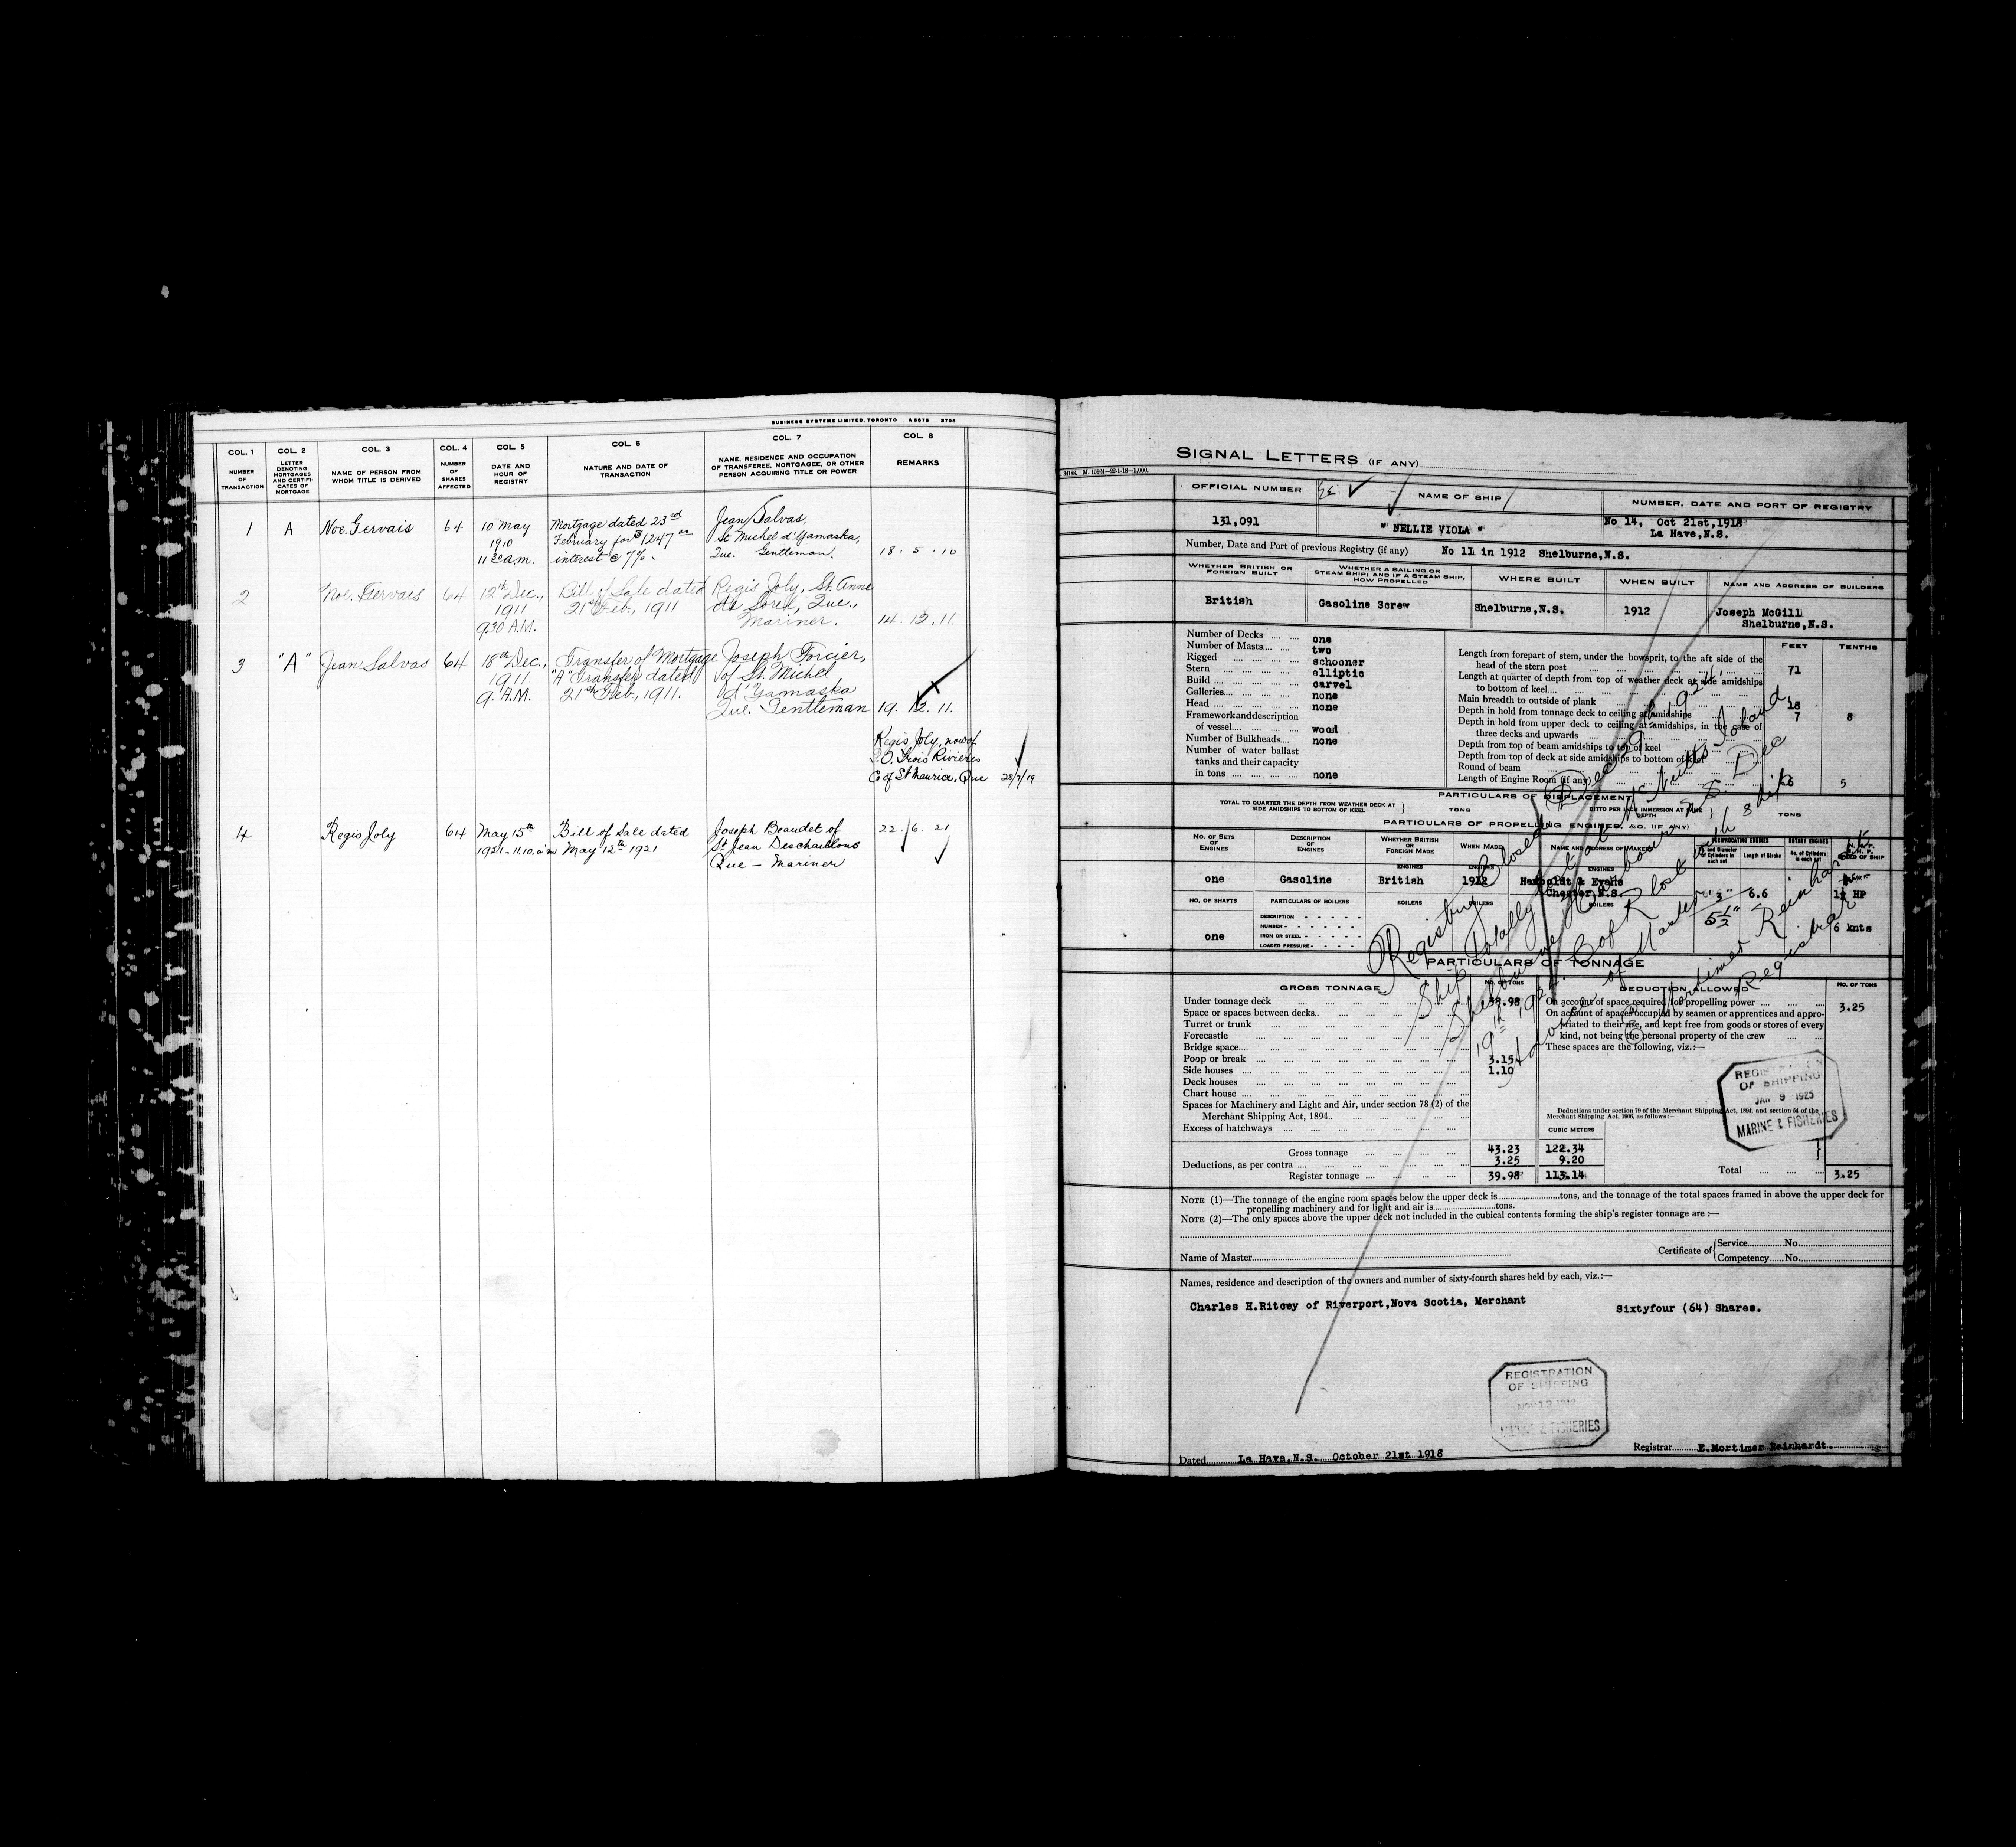 BUSINESS SYSTEMS LIMITED, TORONTO A 6675 2702
COL. 1 COL. 2 COL. 3 COL. 4 COL. 5 COL. 6 COL. 7 COL. 8
NUMBER OF TRANSACTION
LETTER DENOTING MORTGAGES AND CERTIFICATES OF MORTGAGE
NAME OF PERSON FROM WHOM TITLE IS DERIVED
NUMBER OF SHARES AFFECTED
DATE AND HOUR OF REGISTRY
NATURE AND DATE OF TRANSACTION
NAME, RESIDENCE AND OCCUPATION OF TRANSFEREE, MORTGAGEE, OR OTHER PERSON ACQUIRING TITLE OR POWER
REMARKS
1 A Noe. Gervais 64 10 May Mortgage dated 23rd Jean Salvas,
1910 February for $1247 St Michel d'Yamaska,
11 30 a.m. interest @ 7% Que. Gentleman. 18 . 5 . 10
2 Noe. Gervais 64 12th Dec., Bill of Sale dated Regis Joly, St. Anne
1911 21st Feb., 1911 de Sorel, Que.,
9.30 A.M. Mariner. 14. 12. 11.
3 "A" Jean Salvas 64 18th Dec., Transfer of Mortgage Joseph Forcier,
1911 "A" Transfer dated of St. Michel
9. A.M. 21st Feb., 1911. d'Yamaska
Que. Gentleman 19. 12. 11.
Regis Joly, now of
P.O. Trois Rivieres
C. of St Maurice, Que 28/7/19
4 Regis Joly 64 May 15th Bill of Sale dated Joseph Beaudet of 22. 6. 21
1921 - 11.10. a.m May 12th 1921 St Jean Deschaillons
Que — Mariner
SIGNAL LETTERS (IF ANY)
M. 15924—22-1-18—1,000.
OFFICIAL NUMBER NAME OF SHIP NUMBER, DATE AND PORT OF REGISTRY
131,091 " NELLIE VIOLA " No 14, Oct 21st,1918
La Have,N.S.
Number, Date and Port of previous Registry (if any) No 11 in 1912 Shelburne,N.S.
WHETHER BRITISH OR FOREIGN BUILT
WHETHER A SAILING OR STEAM SHIP; AND IF A STEAM SHIP, HOW PROPELLED
WHERE BUILT
WHEN BUILT
NAME AND ADDRESS OF BUILDERS
British Gasoline Screw Shelburne,N.S. 1912 Joseph McGill
Shelburne,N.S.
Number of Decks one
Number of Masts two
Rigged schooner
Stern elliptic
Build carvel
Galleries none
Head none
Framework and description
of vessel wood
Number of Bulkheads none
Number of water ballast
tanks and their capacity
in tons none
FEET TENTHS
Length from forepart of stem, under the bowsprit, to the aft side of the
head of the stern post 71
Length at quarter of depth from top of weather deck at side amidships
to bottom of keel
Main breadth to outside of plank 18
Depth in hold from tonnage deck to ceiling at amidships 7 8
Depth in hold from upper deck to ceiling at amidships, in the case of
three decks and upwards
Depth from top of beam amidships to top of keel
Depth from top of deck at side amidships to bottom of keel
Round of beam
Length of Engine Room (if any) 5
PARTICULARS OF DISPLACEMENT
TOTAL TO QUARTER THE DEPTH FROM WEATHER DECK AT SIDE AMIDSHIPS TO BOTTOM OF KEEL TONS
DITTO PER INCH IMMERSION AT SAME DEPTH TONS
PARTICULARS OF PROPELLING ENGINES, &C. (IF ANY)
NO. OF SETS OF ENGINES
DESCRIPTION OF ENGINES
WHETHER BRITISH OR FOREIGN MADE
WHEN MADE
NAME AND ADDRESS OF MAKERS
RECIPROCATING ENGINES
No. and Diameter of Cylinders in each set
Length of Stroke
ROTARY ENGINES
No. of Cylinders in each set
SPEED OF SHIP
ENGINES ENGINES ENGINES
one Gasoline British 1912 & Evans
Chester,N.S. 3" 6.6 HP
5½"
NO. OF SHAFTS PARTICULARS OF BOILERS BOILERS BOILERS BOILERS
one
DESCRIPTION
NUMBER
IRON OR STEEL
LOADED PRESSURE
6 knts
PARTICULARS OF TONNAGE
GROSS TONNAGE NO. OF TONS
Under tonnage deck 38.98
Space or spaces between decks
Turret or trunk
Forecastle
Bridge space
Poop or break 3.15
Side houses 1.10
Deck houses
Chart house
Spaces for Machinery and Light and Air, under section 78 (2) of the
Merchant Shipping Act, 1894
Excess of hatchways
CUBIC METERS
Gross tonnage 43.23 122.34
Deductions, as per contra 3.25 9.20
Register tonnage 39.98 113.14
DEDUCTION ALLOWED NO. OF TONS
On account of space required for propelling power 3.25
On account of spaces occupied by seamen or apprentices and appro-
priated to their use, and kept free from goods or stores of every
kind, not being the personal property of the crew
These spaces are the following, viz.:—
Deductions under section 79 of the Merchant Shipping Act, 1894, and section 54 of the
Merchant Shipping Act, 1906, as follows:—
Total 3.25
Registry Closed Dec 19 1924
Ship Totally lost at McNutts Island
Shelburne Harbour N.S. Dec
19th 1924. C of R lost with ship
E. Mortimer Reinhardt
Registrar
OF SHIPPING
JAN 9 1925
MARINE & FISHERIES
NOTE (1)—The tonnage of the engine room spaces below the upper deck is tons, and the tonnage of the total spaces framed in above the upper deck for
propelling machinery and for light and air is tons.
NOTE (2)—The only spaces above the upper deck not included in the cubical contents forming the ship's register tonnage are :—
Name of Master
Certificate of Service No.
Competency No.
Names, residence and description of the owners and number of sixty-fourth shares held by each, viz.:—
Charles H.Ritcey of Riverport,Nova Scotia, Merchant Sixtyfour (64) Shares.
REGISTRATION
OF SHIPPING
MARINE & FISHERIES
Dated La Have,N.S. October 21st 1918
Registrar E.Mortimer Reinhardt